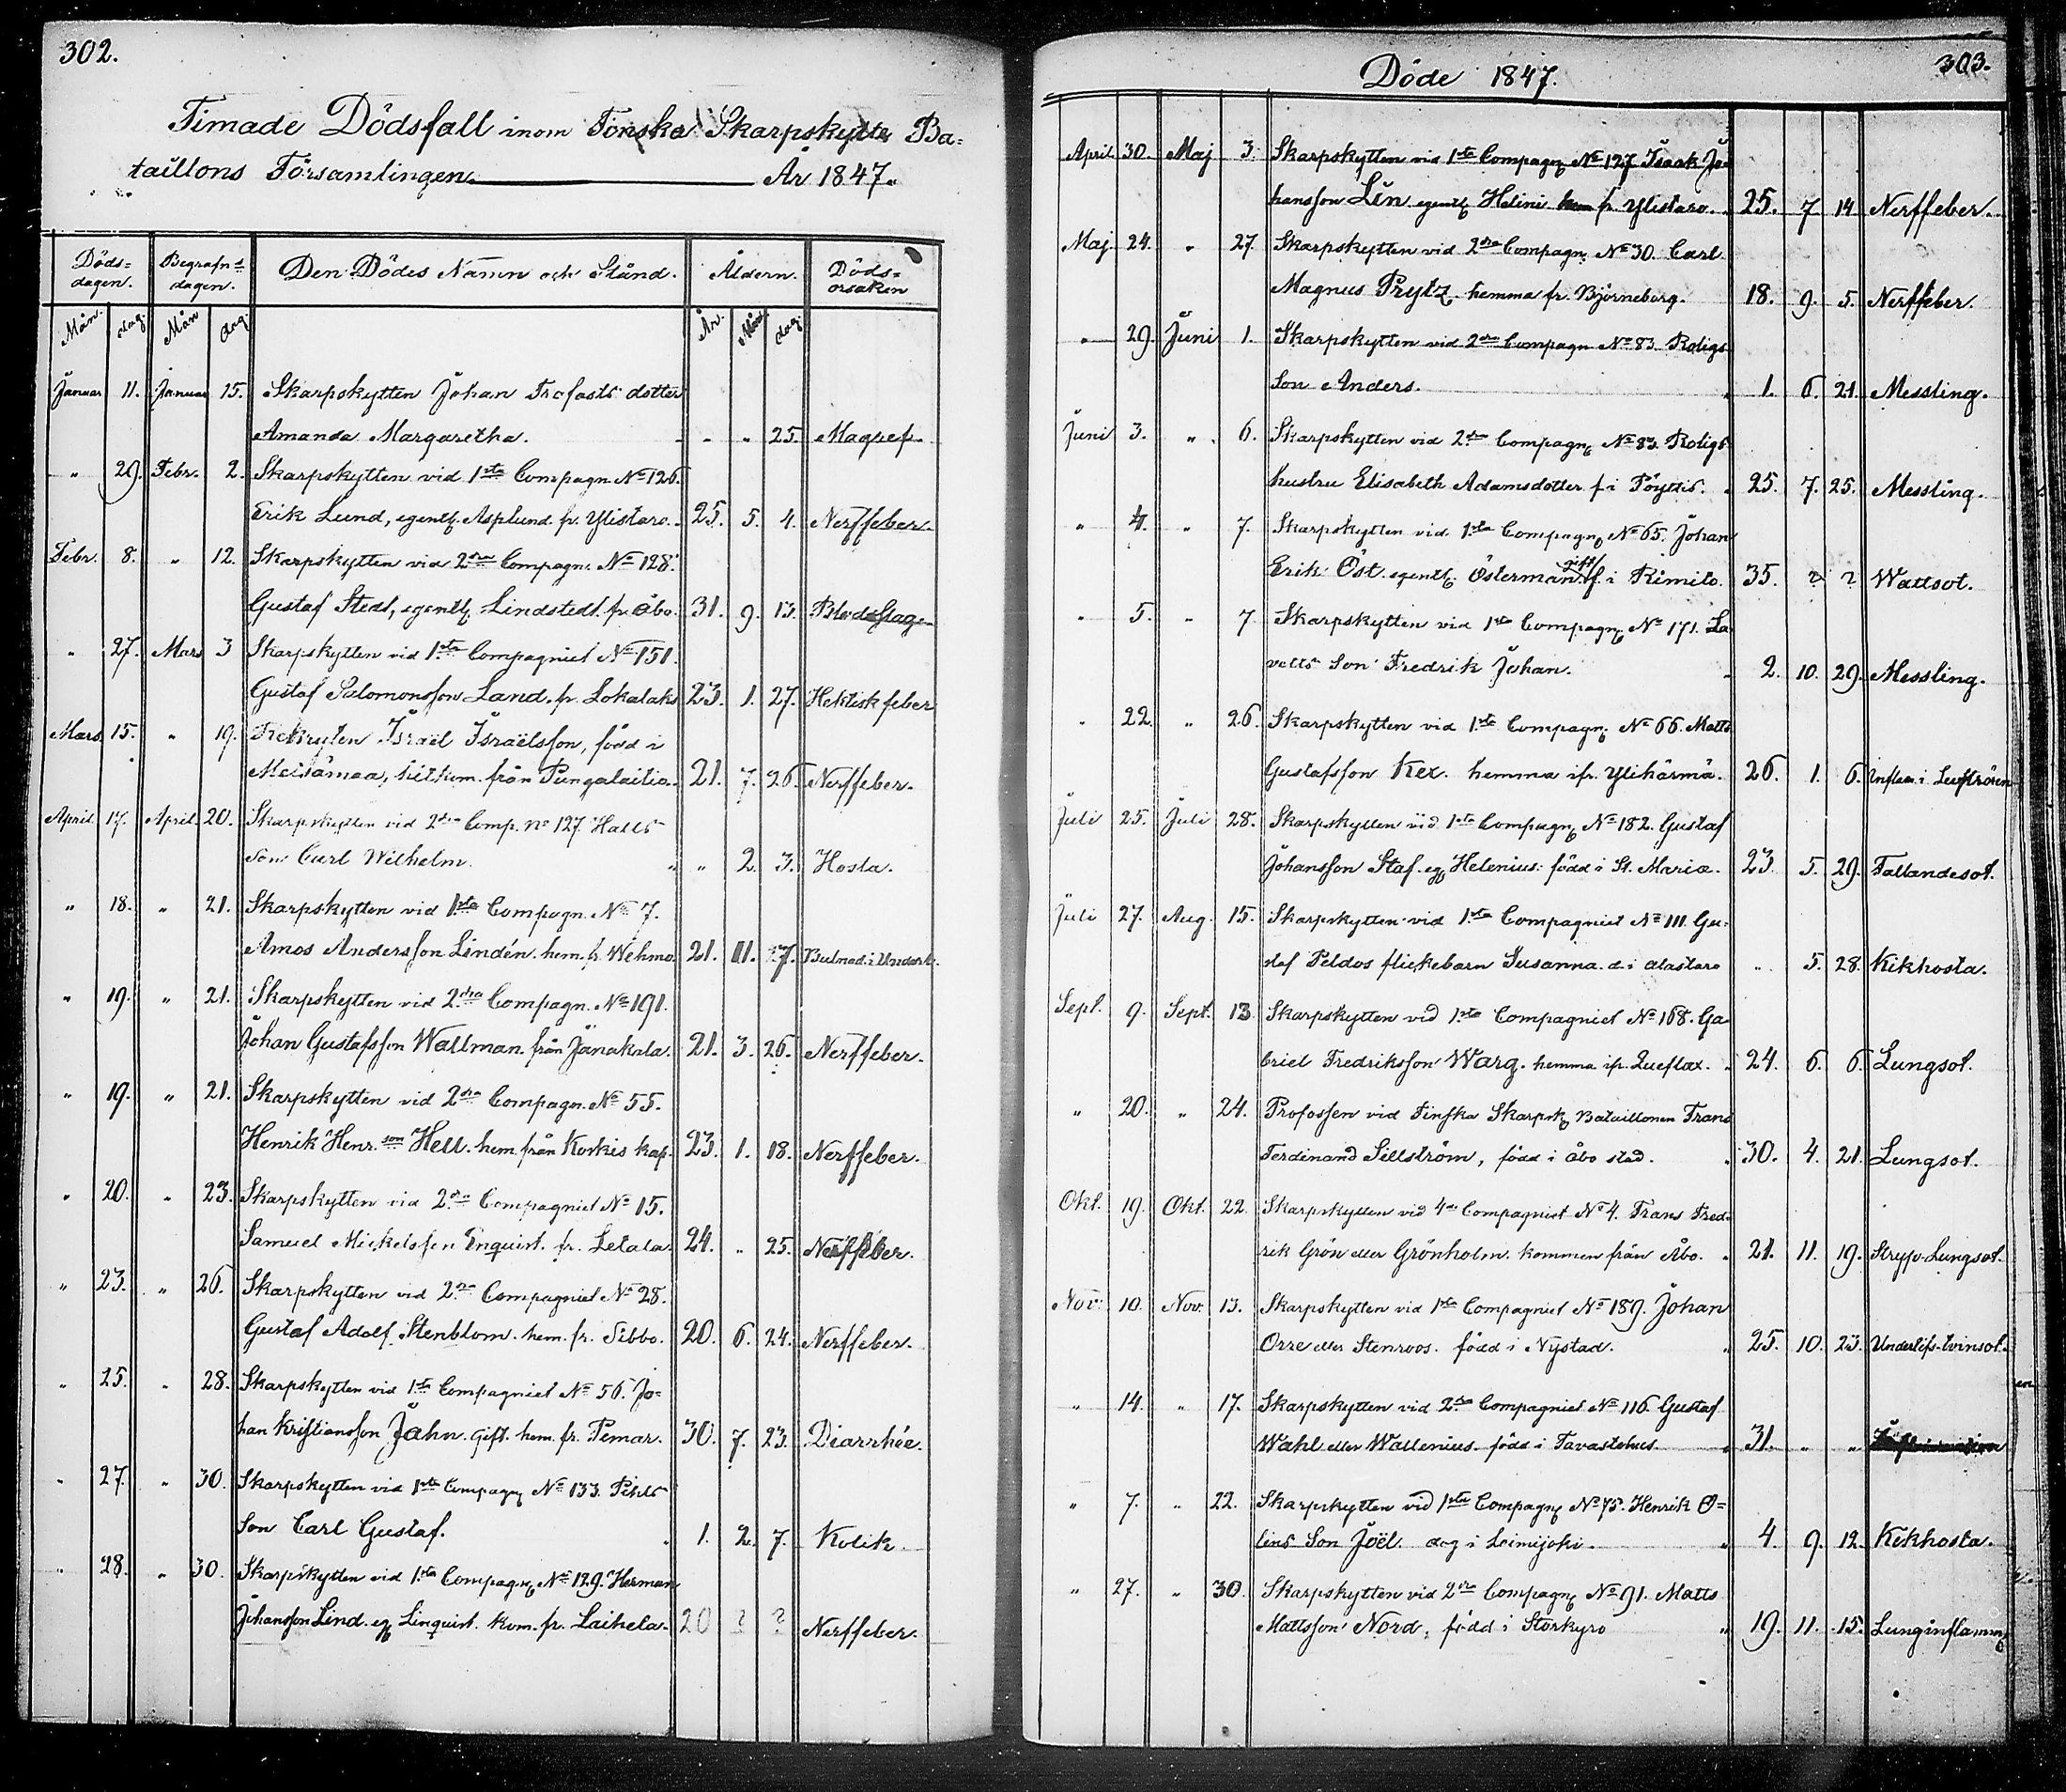 302.
Timade Dödsfall inom Finska Skarpskytte Ba-
taillons Församlingen. År 1847.
Döds- dagen. Begrafn.s dagen. Den Dödes Namn och Stånd. Åldern. Döds- orsaken
Mån. dag. Mån dag. År. Mån. dag.
Januar 11. Januar 15. Skarpskytten Johan Trofasts dotter
Amanda Margaretha. " " 25. Magref.
" 29. Febr. 2. Skarpskytten vid 1sta Compagn. No 126.
Erik Lund, egentl. Asplund. fr. Ylistaro. 25. 5. 4. Nerffeber.
Febr. 8. " 12. Skarpskytten vid 2dra Compagn. No 128.
Gustaf Stedt, egentl. Lindstedt. fr. Åbo. 31. 9. 13. Blodslag.
" 27. Mars 3 Skarpskytten vid 1sta Compagniet No 151.
Gustaf Salomonsson Land. fr. Lokalaks 23. 1. 27. Hektisk feber
Mars 15. " 19. Rekryten Israël Israëlsson, född i
Messämaa, hitkom. från Pungalaitio. 21. 7. 26. Nerffeber.
April 17. April 20. Skarpskytten vid 2dra Comp. no 127 Halls
son Carl Wilhelm. " " 2 3. Hosta.
" 18. " 21. Skarpskytten vid 1sta Compagn. No 7.
Amos Andersson Lindén. hem. fr. Wehmo. 21. 11. 17. Bulnad i Underl.
" 19. " 21. Skarpskytten vid 2dra Compagn. No 191.
Johan Gustafsson Wallman. från Janakala. 21. 3. 26. Nerffeber.
" 19. " 21. Skarpskytten vid 2dra Compagn. No 55.
Henrik Henr.son Hell. hem. från Korkis kap. 23. 1. 18. Nerffeber.
" 20. " 23. Skarpskytten vid 2dra Compagniet No 15.
Samuel Mickelsson Enquist. fr. Letala. 24. " 25. Nerffeber.
" 23. " 26. Skarpskytten vid 2dra Compagniet No 28.
Gustaf Adolf Stenblom. hem. fr. Sibbo. 20. 6. 24. Nerffeber.
" 25. " 28. Skarpskytten vid 1sta Compagniet No 56. Jo-
han Kristiansson Jahn. gift. hem. fr. Pemar. 30. 7. 23. Diarrhée.
" 27. " 30. Skarpskytten vid 1sta Compagn. No 133. Pihls
son Carl Gustaf. " 1. 2. 7. Kolik
" 28. " 30. Skarpskytten vid 1sta Compagn. No 129. Herman
Johansson Lind. eg. Linquist. kom. fr. Laihela. 20 ? ? Nerffeber.
Döde 1847. 303.
April 30. Maj 3. Skarpskytten vid 1sta Compagn. No 127 Isaak Jo-
hansson Lin egentl. Helini fr. Ylistaro. 25. 7 14 Nerffeber.
Maj. 24. " 27 Skarpskytten vid 2dra Compagn. No 30. Carl
Magnus Prytz. hemma fr. Björneborg. 18. 9. 5. Nerffeber.
" 29. Juni 1. Skarpskytten vid 2dra Compagn No 83. Roligs
Son Anders. " 1. 6. 21. Messling.
Juni 3. " 6. Skarpskytten vid 2dra Compagn. No 83. Roligs
hustru Elisabeth Adamsdotter f. i Pöyttis. " 25. 7. 25. Messling.
" 4. " 7. Skarpskytten vid 1sta Compagn. No 65. Johan
Erik Öst. egentl. Österman gift f. i Kimito. 35. ? ? Wattsot.
" 5. " 7 Skarpskytten vid 1sta Compagn. No 171. La-
valls Son Fredrik Johan. " 2. 10. 29. Messling.
" 22. " 26. Skarpskytten vid 1sta Compagn. No 66. Matts
Gustafsson Kex. hemma ifr. Ylihärmä. 26. 1. 6. Inflam. i Luftrören
Juli 25. Juli 28. Skarpskytten vid 1sta Compagn. No 182. Gustaf
Johansson Staf. eg. Helenius. född i St. Mariæ. 23 5. 29. Fallandesot.
Juli 27. Aug. 15. Skarpskytten vid 1sta Compagniet No 111. Gu-
staf Peldos flickebarn Susanna. d. i Alastaro " 5. 28. Kikhosta.
Sept. 9. Sept. 13. Skarpskytten vid 1sta Compagniet No 168. Ga-
briel Fredriksson Warg. hemma ifr. Queflax. " 24. 6. 6. Lungsot.
" 20. " 24. Profossen vid Finska Skarpsk. Bataillonen Frans
Ferdinand Sillström, född i Åbo stad. " 30. 4. 21. Lungsot.
Okt. 19. Okt. 22. Skarpskytten vid 4de Compagniet No 4. Frans Fred-
rik Grön eller Grönholm. kommen från Åbo. " 21. 11. 19. Stryp-Lungsot.
Nov. 10. Nov. 13. Skarpskytten vid 1sta Compagniet No 189. Johan
Orre eller Stenroos. född i Nystad. " 25. 10. 23. Underlifs-tvinsot.
" 14. " 17. Skarpskytten vid 2dra Compagniet No 116. Gustaf
Wahl eller Wallenius född i Tavastehus. " 31. " "
" 7. " 22. Skarpskytten vid 1sta Compagn. No 75. Henrik O-
lins Son Joël. dog i Loimijoki. " 4. 9. 12. Kikhosta.
" 27. " 30. Skarpskytten vid 2dra Compagn. No 91. Matts
Mattsson Nord, född i Storkyro " 19. 11. 15. Lunginflamm.